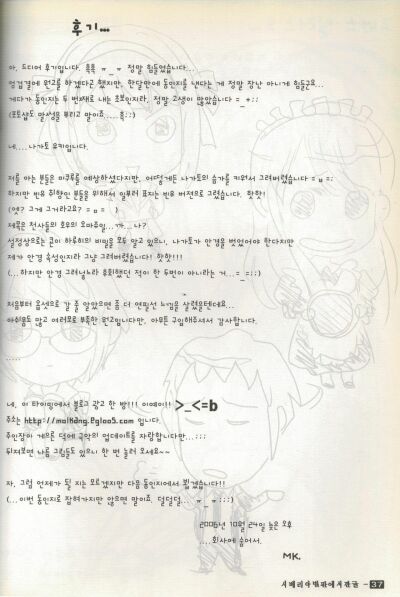 후기...
아, 드디어 후기입니다. 흑흑 ㅠ_ㅠ 정말 힘들었습니다...
엉겁결에 원고를 하게다고 했지만, 한달만에 동인지를 내다는 게 정말 장난 아니게 힘들군요...
게다가 동인지는 두 번째로 내는 초보인지라, 정말 고생이 많았습니다 =_+;;
(포토샵도 말썽을 부리고 말이죠...흑;;)
네.... 나가토 유키입니다.
저를 아는 분들은 미쿠루를 예상하셨다지만, 어떻게든 나가토의 슴가를 키워서 그려버렸습니다 =ㅂ=;
하지만 빈유 취향인 분들을 위해서 일부러 표지는 빈유 버전으로 그렸습니다. 핫핫!
(엣? 그게 그거라고요? =ㅁ= )
제목은 천사들의 호우의 오마쥬입...까...나?
설정상으로는 쿈이 하루히의 비밀을 모두 알고 있으니, 나가토가 안경을 벗었어야 한다지만
제가 안경 속성인지라 그냥 그려버렸습니다! 핫핫!!!
(...하지만 안경 그려넣느라 후회했던 적이 한 두번이 아니라는 거...=_=;;)
처음부터 옵셋으로 갈 줄 알았으면 좀 더 연필선 느낌을 살렸을텐데요...
아쉬움도 많고 여러모로 부족한 원고입니다만, 아무튼 구입해주셔서 감사합니다.
.....
네, 이 타이밍에서 블로그 광고 한 방!!! 이예이!! >_<=b
주소는 http://malkang.egloos.com 입니다.
주인장이 게으른 덕에 극악의 업데이트를 자랑합니다만...;;;
뒤져보면 나름 그림들도 있으니 한 번 놀러 오세요~~
자, 그럼 언제가 될 지는 모르겠지만 다음 동인지에서 뵙겠습니다!!
(...이번 동인지로 잡혀가지만 않으면 말이죠, 덜덜덜... ㅠ_ㅠ;;;)
2006년 10월 24일 늦은 오후
....회사에 숨어서.
MK.
시베리아벌판에서판금 - 37